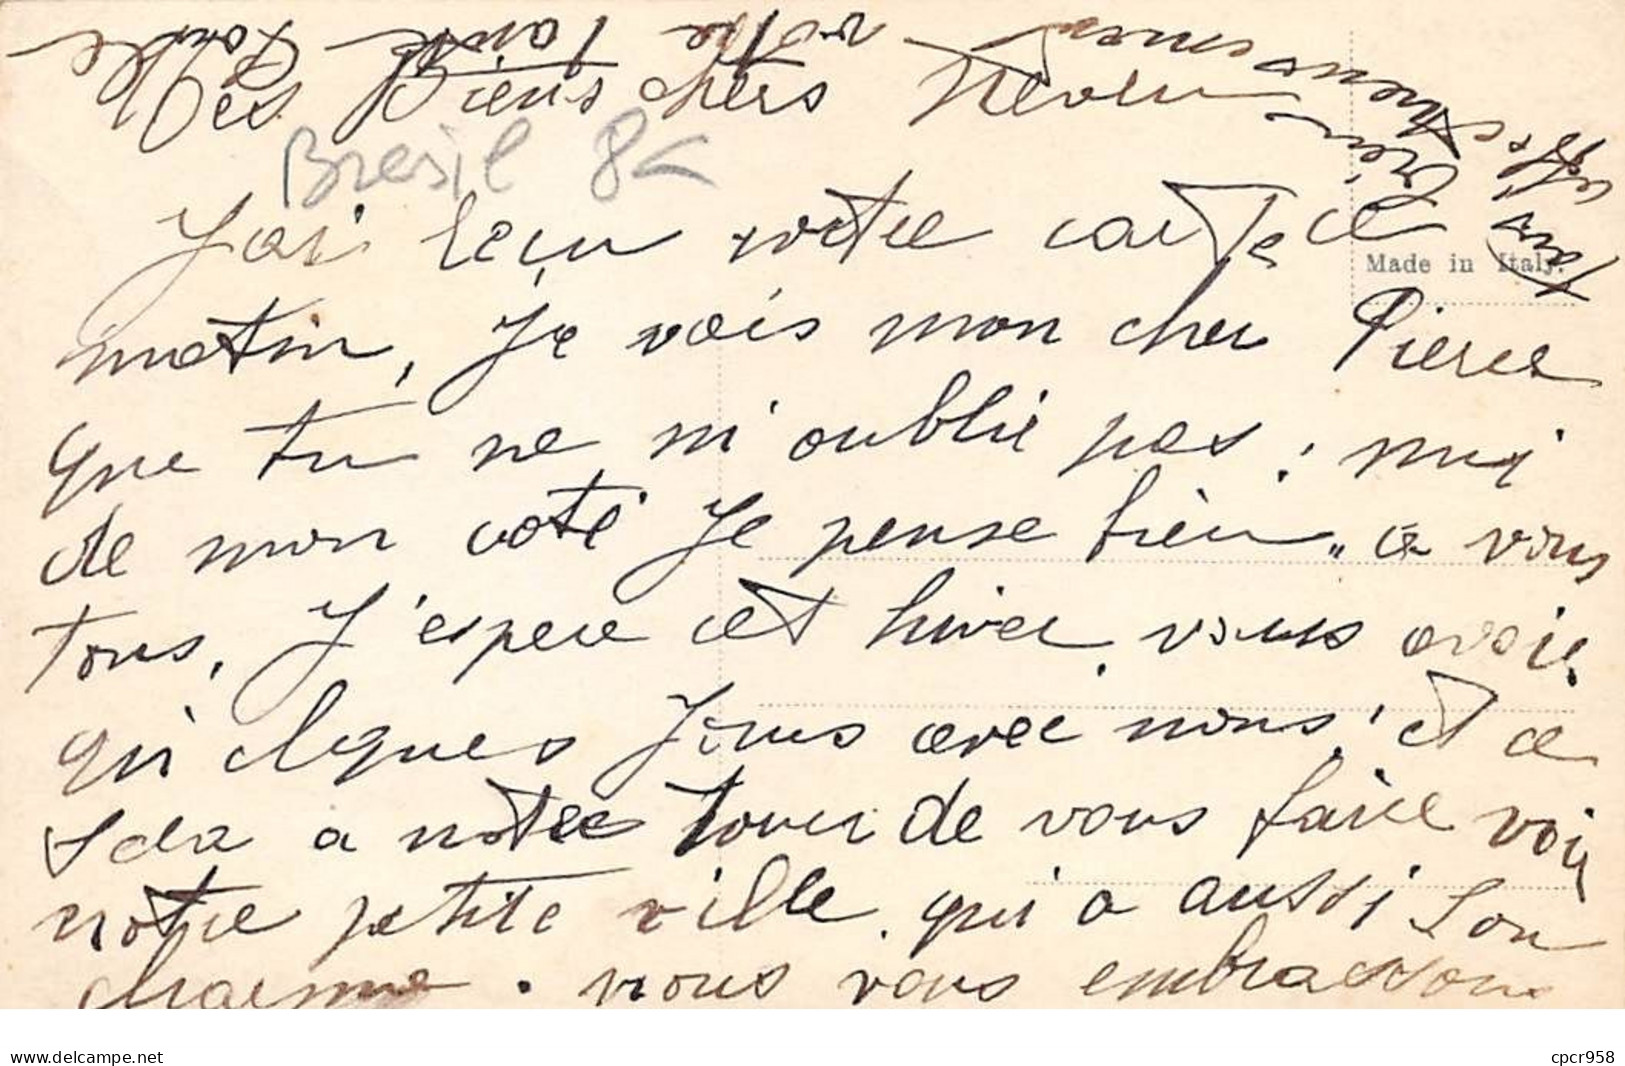 Mes Biens chers Neveu
Bresil 8€
J'ai Reçu votre carte ce
Made in Italy.
matin, Je vois mon cher Pierre
que tu ne m'oublie pas; moi
de mon coté Je pense bien " a vous
tous. J'espere cet hiver, vous avoir
qu'elques Jours avec nous; et ce
sera a notre tour de vous faire voir
notre petite ville. qui a aussi son
charme. nous vous embrassons
tous
bien
Affectueusement
votre Tante
delcampe.net
cpcr958